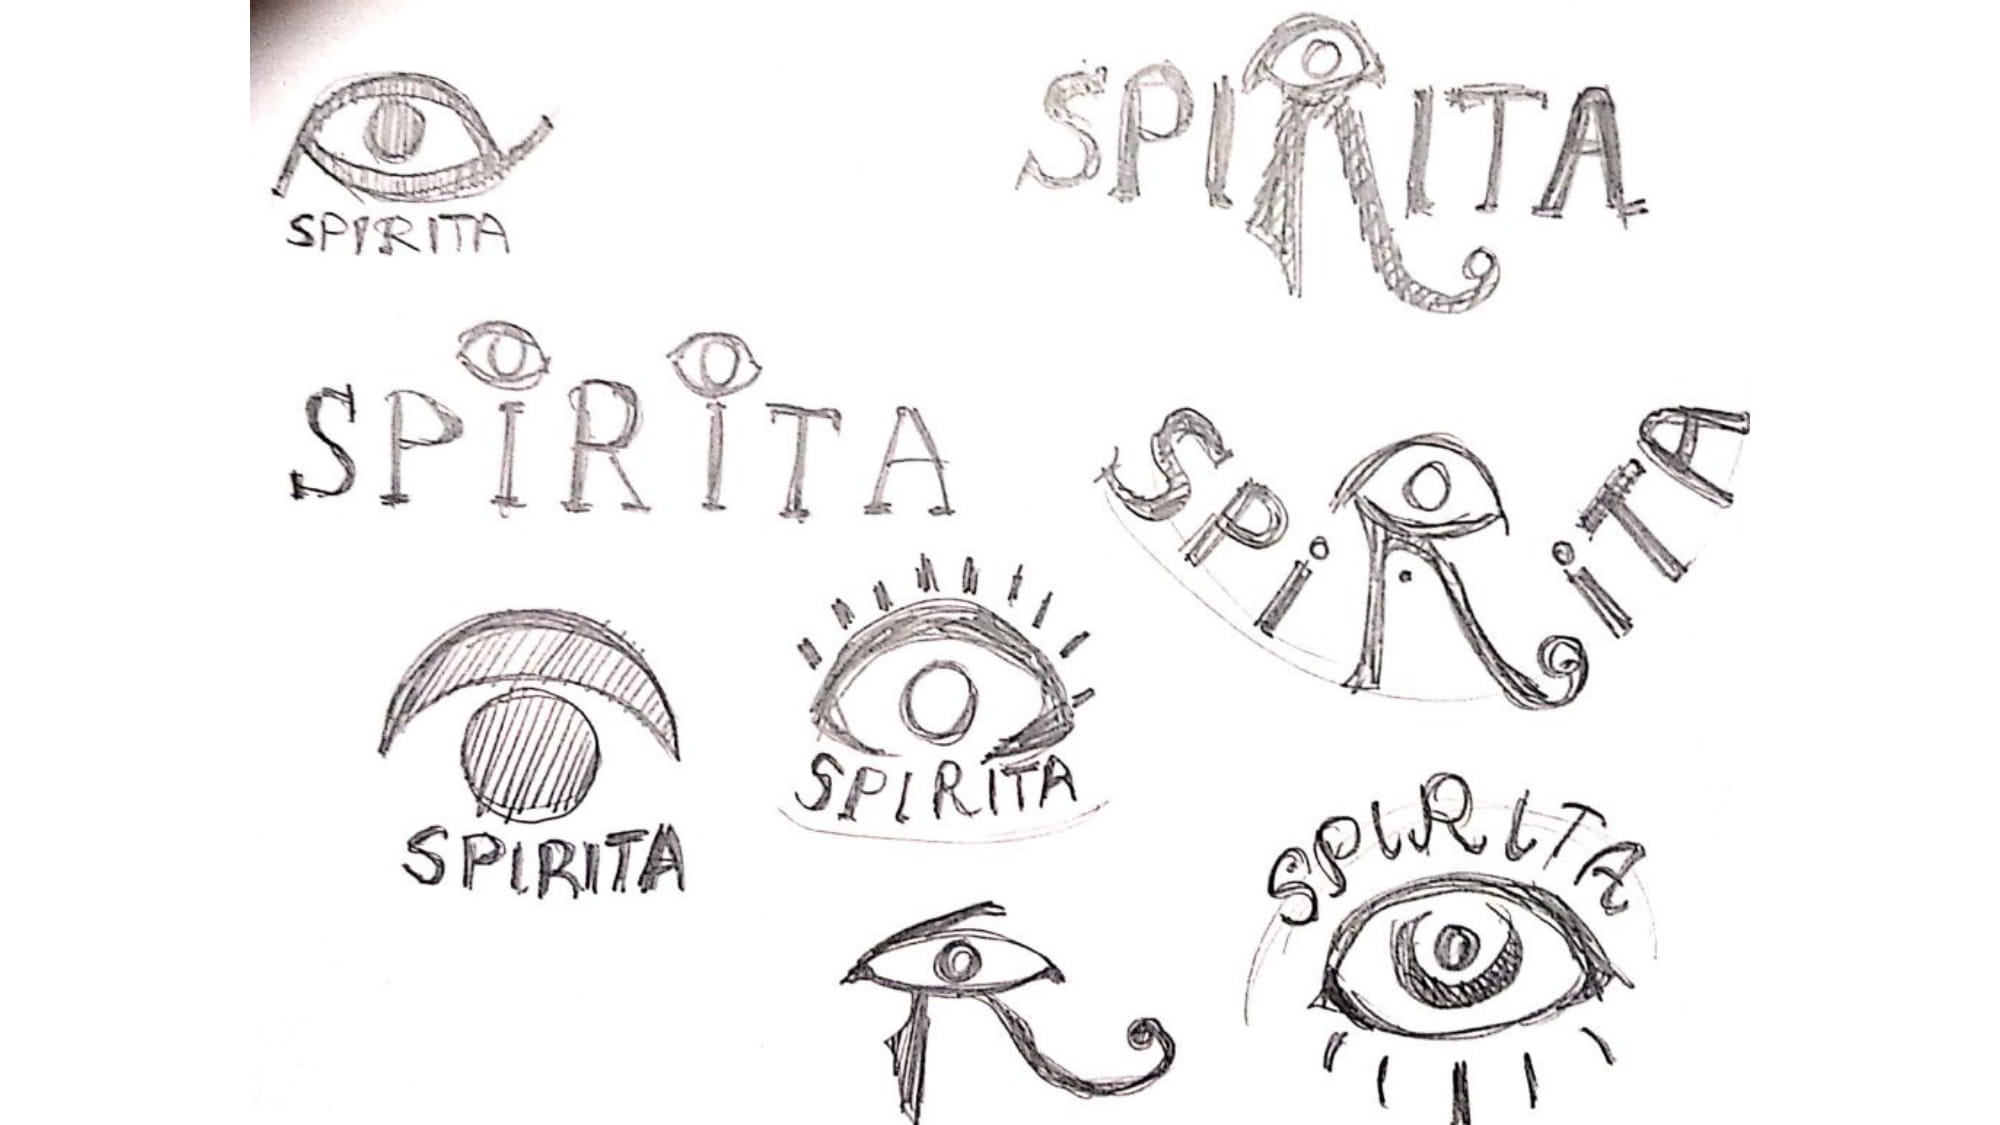 SPIRITA
SPIRITA
SPiRiTA
SPiRiTA
SPIRITA
SPIRITA
SPIRITA